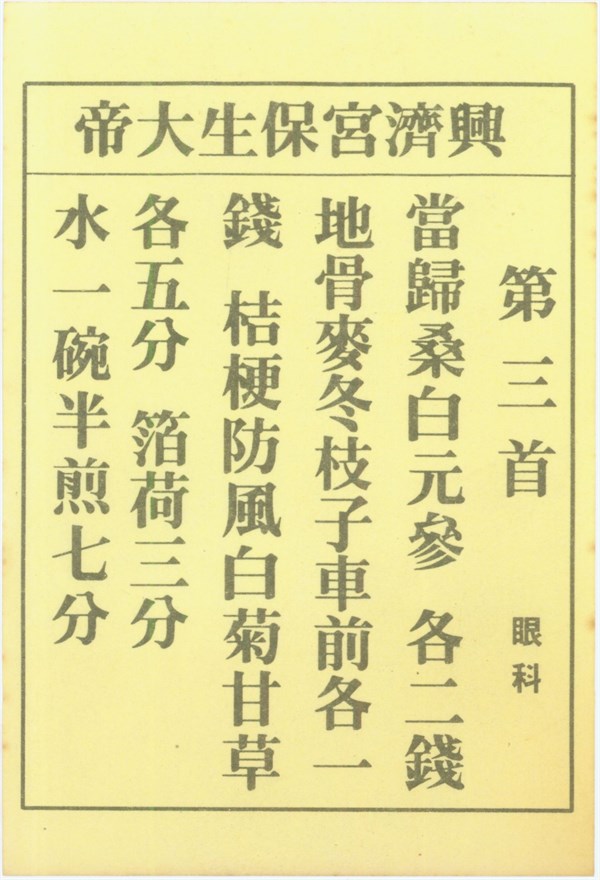 興濟宮保生大帝
第三首 眼科
當歸桑白元參 各二錢
地骨麥冬枝子車前各一
錢 桔梗防風白菊甘草
各五分 箔荷三分
水一碗半煎七分